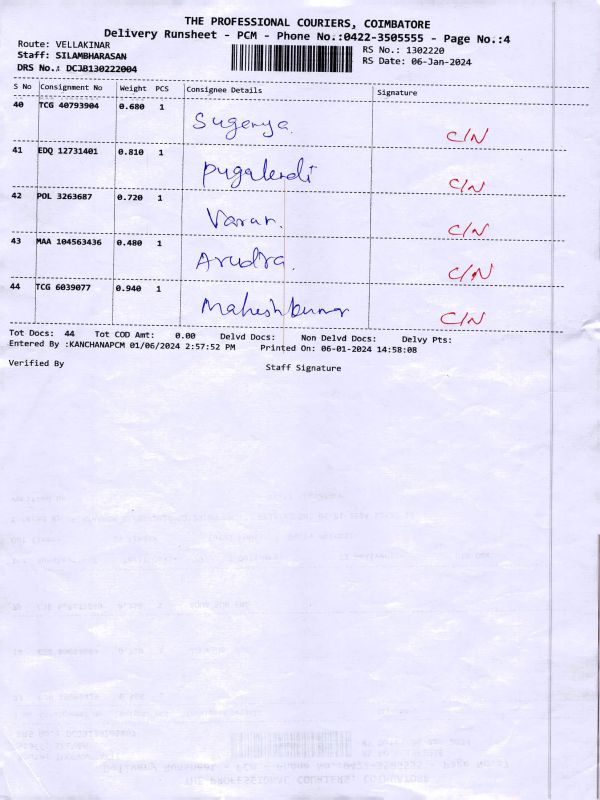 THE PROFESSIONAL COURIERS, COIMBATORE
Delivery Runsheet - PCM - Phone No.:0422-3505555 - Page No.:4
Route: VELLAKINAR
RS No.: 1302220
Staff: SILAMBHARASAN
RS Date: 06-Jan-2024
DRS No.: DCJB130222004
S No Consignment No Weight PCS Consignee Details Signature
40 TCG 40793904 0.680 1
Sugenya. C/N
41 EDQ 12731401 0.810 1
pugalendi C/N
42 POL 3263687 0.720 1
Varan. C/N
43 MAA 104563436 0.480 1
Arudra. C/N
44 TCG 6039077 0.940 1
Maheshkumar C/N
Tot Docs: 44 Tot COD Amt: 0.00 Delvd Docs: Non Delvd Docs: Delvy Pts:
Entered By :KANCHANAPCM 01/06/2024 2:57:52 PM Printed On: 06-01-2024 14:58:08
Verified By Staff Signature